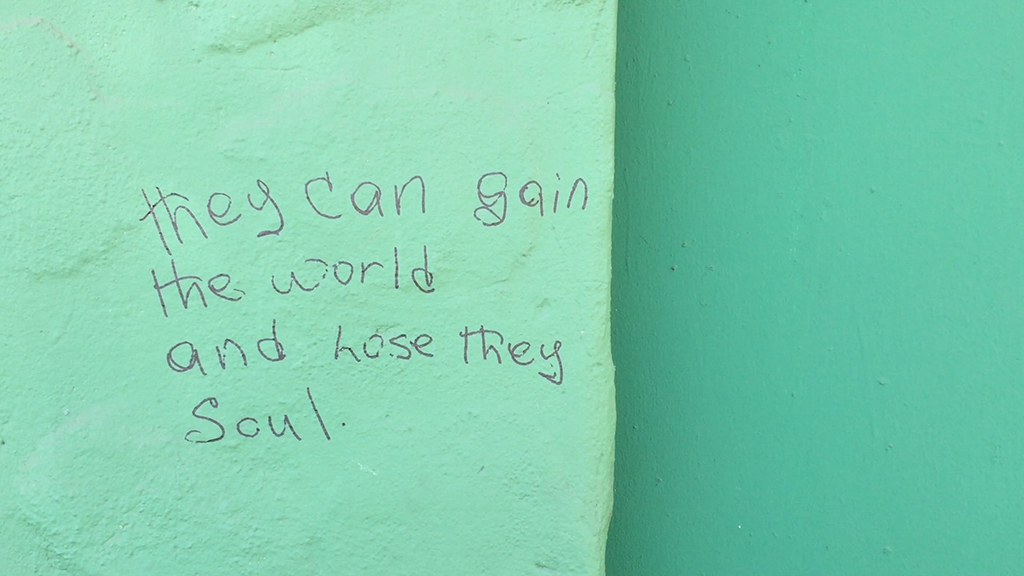 they can gain
the world
and lose they
Soul.